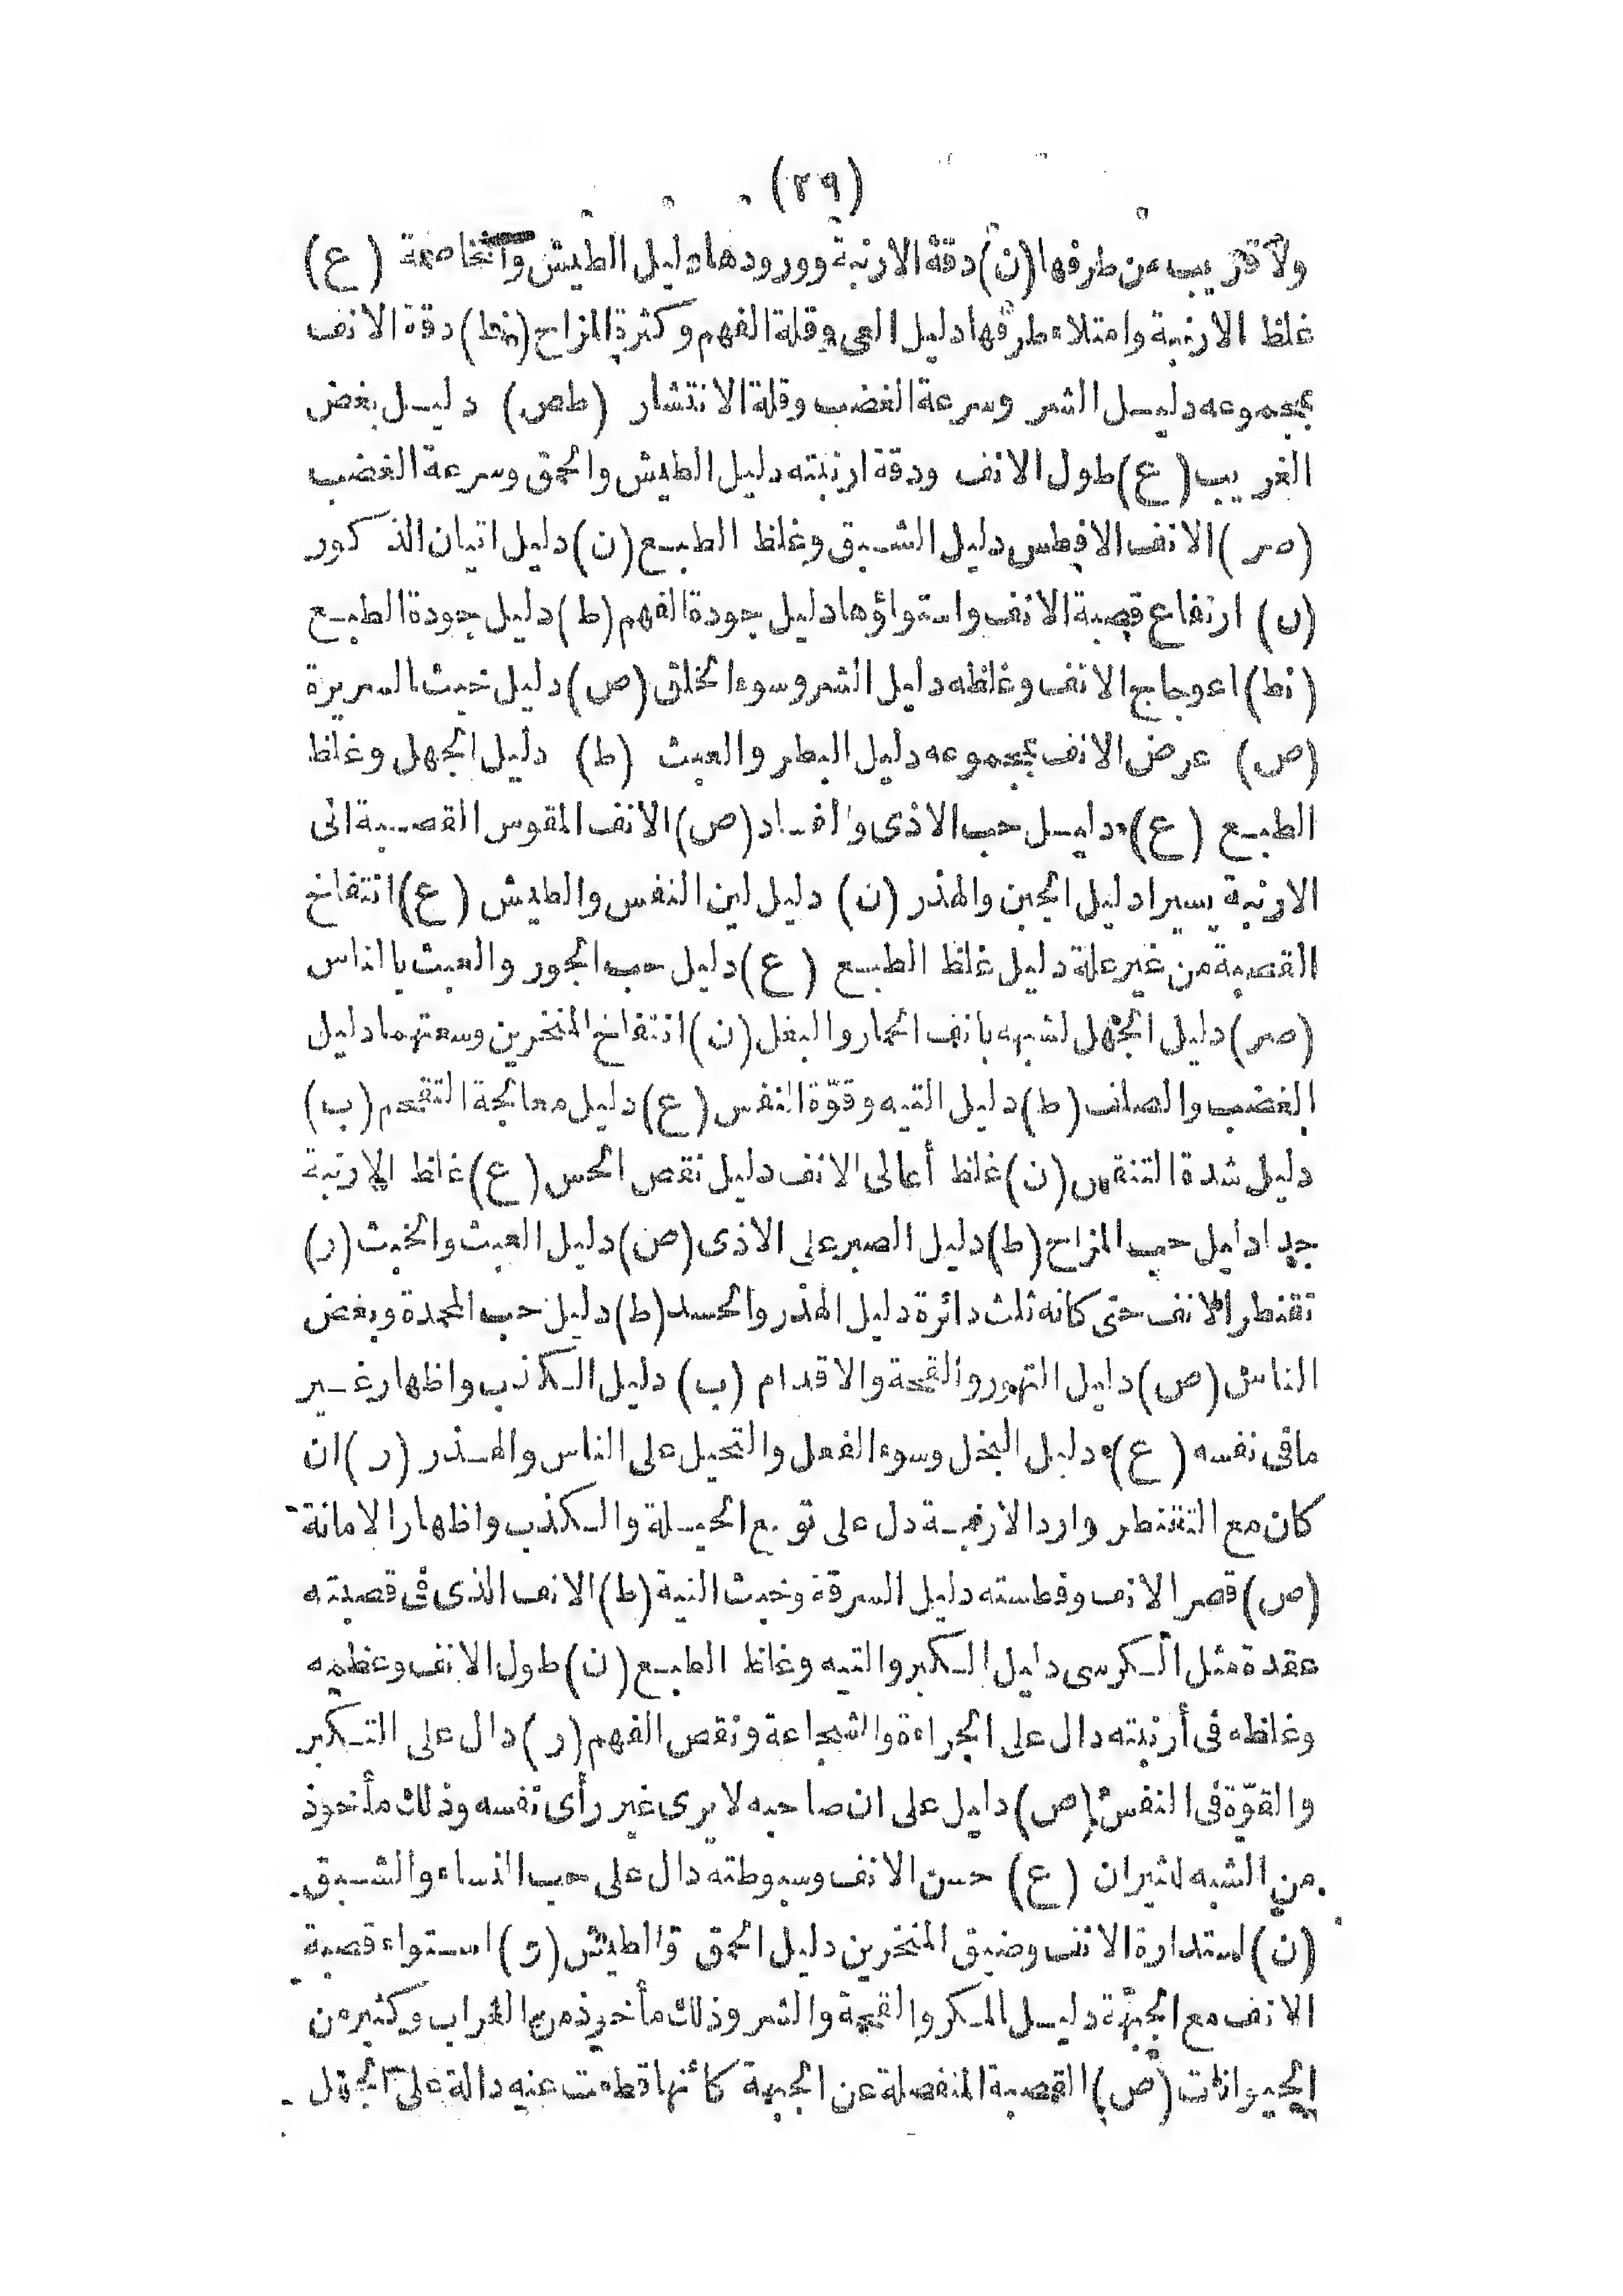 (٢٩)
ولا قريب من طرفها (ن) دقة الارنبة وورودها دليل الطيش والمخاصمة (ع)
غلظ الارنبة وامتلاء طرفها دليل العى وقلة الفهم وكثرة المزاح (نط) دقة الانف
بمجموعه دليل الشر وسرعة الغضب وقلة الانتشار (طص) دليل بغض
الغريب (ع) طول الانف ودقة ارنبته دليل الطيش والحمق وسرعة الغضب
(صر) الانف الافطس دليل الشبق وغلظ الطبع (ن) دليل اتيان الذكور
(ن) ارتفاع قصبة الانف واستواؤها دليل جودة الفهم (ط) دليل جودة الطبع
(نط) اعوجاج الانف وغلظه دليل الشر وسوء الخلق (ص) دليل خبث السريرة
(ص) عرض الانف بمجموعه دليل البطر والعبث (ط) دليل الجهل وغلظ
الطبع (ع) دليل حب الاذى والفساد (ص) الانف المقوس القصبة الى
الارنبة يسيرا دليل الجبن والهذر (ن) دليل لين النفس والطيش (ع) انتفاخ
القصبة من غير علة دليل غلظ الطبع (ع) دليل حب الجور والعبث بالناس
(صر) دليل الجهل لشبهه بانف الحمار والبغل (ن) انتفاخ المنخرين وسعتهما دليل
الغضب والصلف (ط) دليل التيه وقوّة النفس (ع) دليل معالجة التقحم (ب)
دليل شدة التنفس (ن) غلظ أعالى الانف دليل نقص الحس (ع) غلظ الارنبة
جدا دليل حب المزاح (ط) دليل الصبر على الاذى (ص) دليل العبث والخبث (ر)
تقنطر الانف حتى كانه ثلث دائرة دليل الهذر والحسد (ط) دليل حب المحمدة وبغض
الناس (ص) دليل التهور والقحة والاقدام (ب) دليل الكذب واظهار غير
مافى نفسه (ع) دليل البخل وسوء الفعل والتحيل على الناس والهذر (ر) ان
كان مع التقنطر وارد الارنبة دل على الحيلة والكذب واظهار الامانة
(ص) قصر الانف وفطسته دليل السرقة وخبث النية (ط) الانف الذى فى قصبته
عقدة مثل الكرسى دليل الكبر والتيه وغلظ الطبع (ن) طول الانف وعظمه
وغلظه فى أرنبته دال على الجراءة والشجاعة ونقص الفهم (ر) دال على التكبر
والقوّة فى النفس (ص) دليل على ان صاحبه لا يرى غير رأى نفسه وذلك مأخوذ
من الشبه للثيران (ع) حسن الانف وسبوطته دال على حب النساء والشبق
(ن) استدارة الانف وضيق المنخرين دليل الحمق والطيش (ر) استواء قصبة
الانف مع الجبهة دليل المكر والقحة والشر وذلك مأخوذ من الغراب وكثير من
الحيوانات (ص) القصبة المنفصلة عن الجبهة كأنها قطعت عنه دالة على الجهل